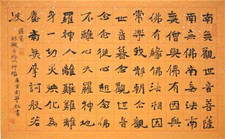 南無觀世音菩薩
南無佛南無法南
無僧與佛有因與
佛有緣佛法相因
常樂我淨朝念觀
世音暮念觀世音
念念從心起念佛
不離心天羅神地
羅神人離難難離
身一切災殃化為
塵南無摩訶般若
波羅蜜